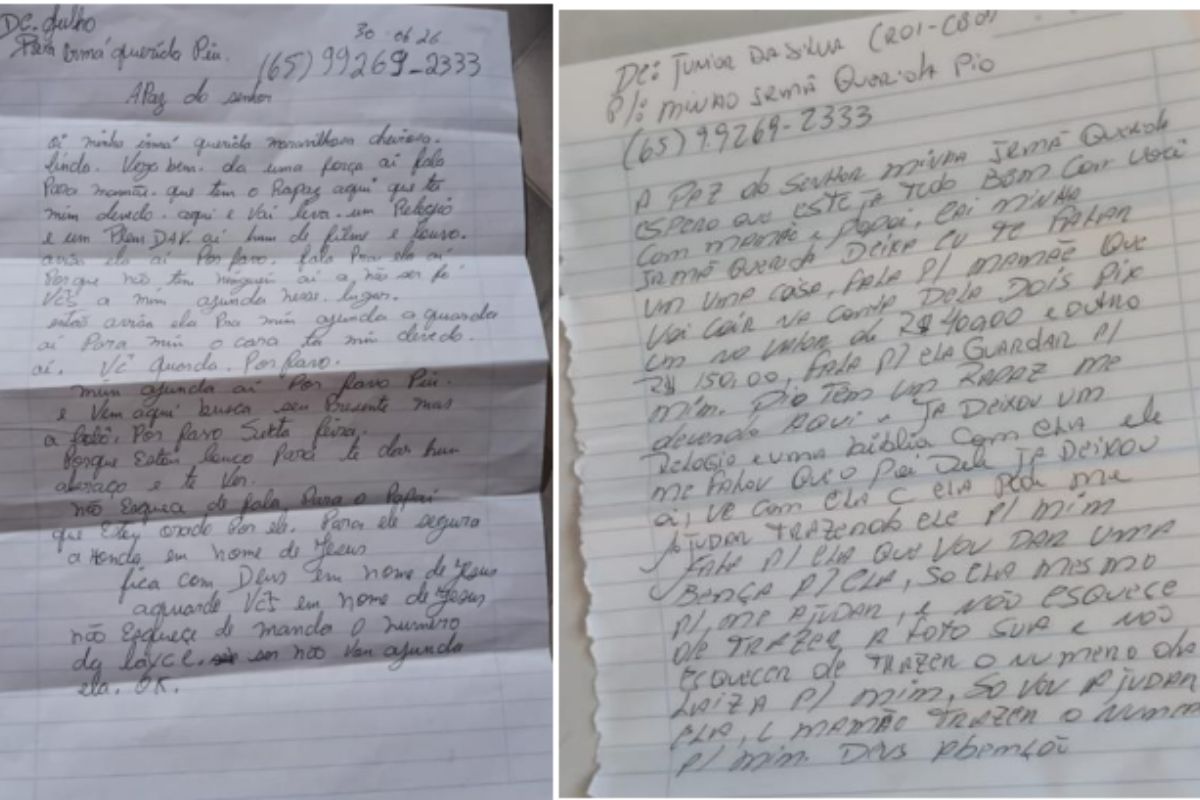 De. Julho
30 06 26
Para Irmá querida Piu.
(65) 99269-2333
A Paz do senhor
oi minha irmá querida maravilhosa cheirosa.
linda. Vego bem. da uma força ai fala
Para mamãe. que tem o Rapaz aqui que ta
mim devedo. aqui e Vai leva. um Relogio
e um Plem DAV. ai bum de filme e louvo.
avisa ela ai Por favo. fala Pra ela ai
Porque não tem ninguem ai a não ser fé
Vcs a mim ajunda nesse. lugar.
então avisa ela Pra mim ajunda a guarda
ai Para mim o cara ta mim devedo.
ai. Vc guarda. Por favo.
mim ajunda ai Por favo Piu.
e Vem aqui busca seu Presente mas
a foto. Por favo Sexta feira.
Porque Estou louco Para te dar hum
abraço e te Ver.
não Esqueça de fala Para o Papai
que Estoy orado Por ele. Para ele segura
a Honda em nome de Jesus
fica com Deus em nome de Jesus
aguardo Vcs em nome de Jesus
não Esqueça de manda o numero
da layce. sen não Vou ajunda
ela. OK.
De: JUNIOR DA SILVA (201-CB01)
P/: MINHO IRMÃ QUERIDA Pio
(65) 99269-2333
A PAZ do SENHOR MINHA IRMÃ QUERIDA
ESPERO QUE ESTEJA TUDO BOM COM VOCÊ
COM MAMÃE e PAPAI, EAI MINHA
IRMÃ QUERIDA DEIXA EU TE FALAR
UM UMA COISA, FALA P/ MAMÃE QUE
VAI CAIR NA CONTA DELA DOIS PIX
UM NO VALOR DE R$ 400,00 e OUTRO
R$ 150,00, FALA P/ ELA GUARDAR P/
MIM. Pio TEM UM RAPAZ ME
devendo AQUI e JA DEIXOU UM
RELOGIO e UMA BIBLIA COM ELA ele
ME FALOU QUE O PAI DELE JA DEIXOU
ai, VE COM ELA C ELA PODE ME
AJUDAR TRAZENDO ELE P/ MIM
FALA P/ ELA QUE VOU DAR UMA
BENÇA P/ ELA, SO ELA MESMO
P/ ME AJUDAR, e NÃO ESQUECE
DE TRAZER A FOTO SUA e NÃO
ESQUECER de TRAZER O NUMERO DA
LAIZA P/ MIM, SO VOU AJUDAR
ELA, C MAMÃO TRAZER O NUMERO
P/ MIM. DEUS ABEMÇOI